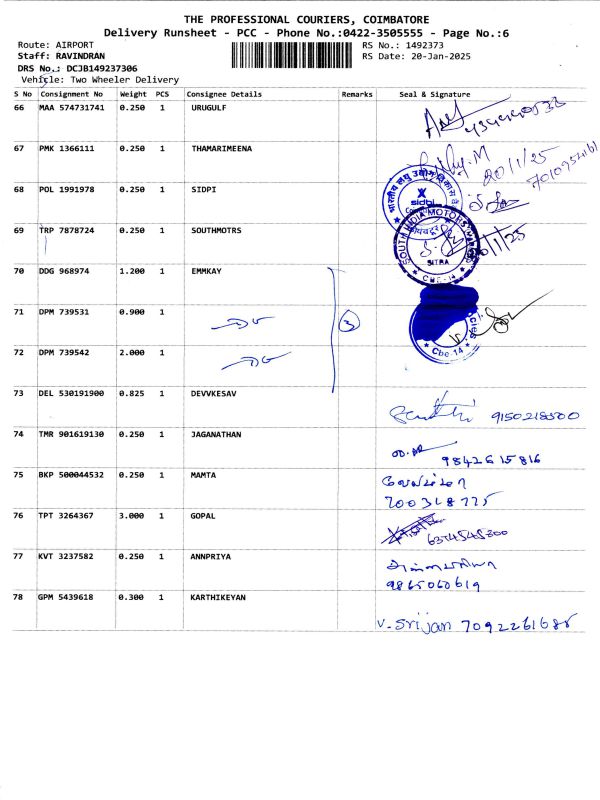 THE PROFESSIONAL COURIERS, COIMBATORE
Delivery Runsheet - PCC - Phone No.:0422-3505555 - Page No.:6
Route: AIRPORT
RS No.: 1492373
Staff: RAVINDRAN
RS Date: 20-Jan-2025
DRS No.: DCJB149237306
Vehicle: Two Wheeler Delivery
S No Consignment No Weight PCS Consignee Details Remarks Seal & Signature
66 MAA 574731741 0.250 1 URUGULF
67 PMK 1366111 0.250 1 THAMARIMEENA
20/1/25
68 POL 1991978 0.250 1 SIDPI
sidbi
69 TRP 7878724 0.250 1 SOUTHMOTRS
SOUTH INDIA MOTORS
SITRA
CBE-14
70 DDG 968974 1.200 1 EMMKAY
71 DPM 739531 0.900 1 3
72 DPM 739542 2.000 1
Cbe-14
73 DEL 530191900 0.825 1 DEVVKESAV
9150218500
74 TMR 901619130 0.250 1 JAGANATHAN
9842615816
75 BKP 500044532 0.250 1 MAMTA
76 TPT 3264367 3.000 1 GOPAL
77 KVT 3237582 0.250 1 ANNPRIYA
9865060619
78 GPM 5439618 0.300 1 KARTHIKEYAN
V. Srijan